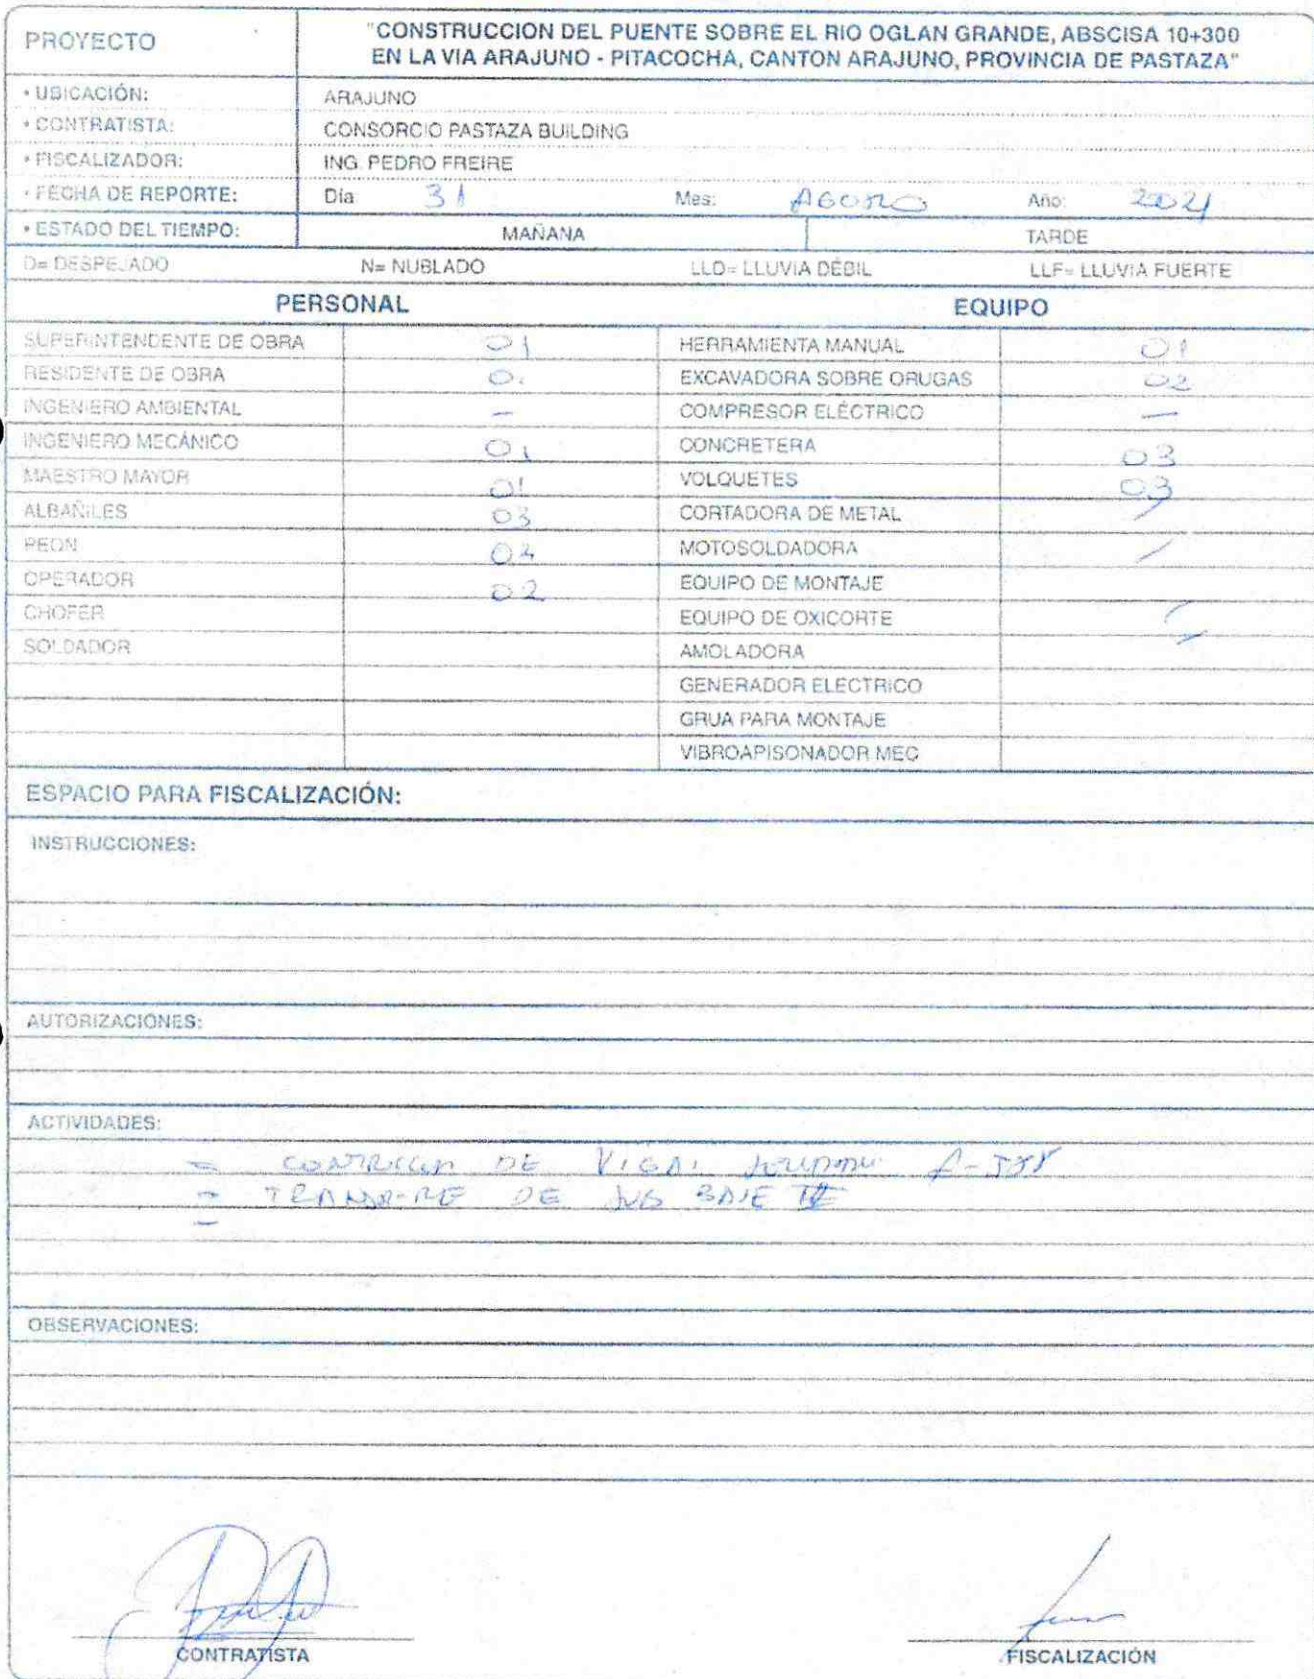 PROYECTO
"CONSTRUCCION DEL PUENTE SOBRE EL RIO OGLAN GRANDE, ABSCISA 10+300
EN LA VIA ARAJUNO - PITACOCHA, CANTON ARAJUNO, PROVINCIA DE PASTAZA"
• UBICACIÓN: ARAJUNO
• CONTRATISTA: CONSORCIO PASTAZA BUILDING
• FISCALIZADOR: ING. PEDRO FREIRE
• FECHA DE REPORTE: Día 31 Mes: AGOSTO Año: 2021
• ESTADO DEL TIEMPO: MAÑANA TARDE
D= DESPEJADO N= NUBLADO LLD= LLUVIA DÉBIL LLF= LLUVIA FUERTE
PERSONAL EQUIPO
SUPERINTENDENTE DE OBRA 01 HERRAMIENTA MANUAL 01
RESIDENTE DE OBRA EXCAVADORA SOBRE ORUGAS 02
INGENIERO AMBIENTAL - COMPRESOR ELÉCTRICO -
INGENIERO MECÁNICO 01 CONCRETERA 03
MAESTRO MAYOR 01 VOLQUETES 03
ALBAÑILES 03 CORTADORA DE METAL
PEON MOTOSOLDADORA
OPERADOR 02 EQUIPO DE MONTAJE
CHOFER EQUIPO DE OXICORTE
SOLDADOR AMOLADORA
GENERADOR ELECTRICO
GRUA PARA MONTAJE
VIBROAPISONADOR MEC
ESPACIO PARA FISCALIZACIÓN:
INSTRUCCIONES:
AUTORIZACIONES:
ACTIVIDADES:
- DE VIGAS A-588
- DE SUB BASE
-
OBSERVACIONES:
CONTRATISTA FISCALIZACIÓN